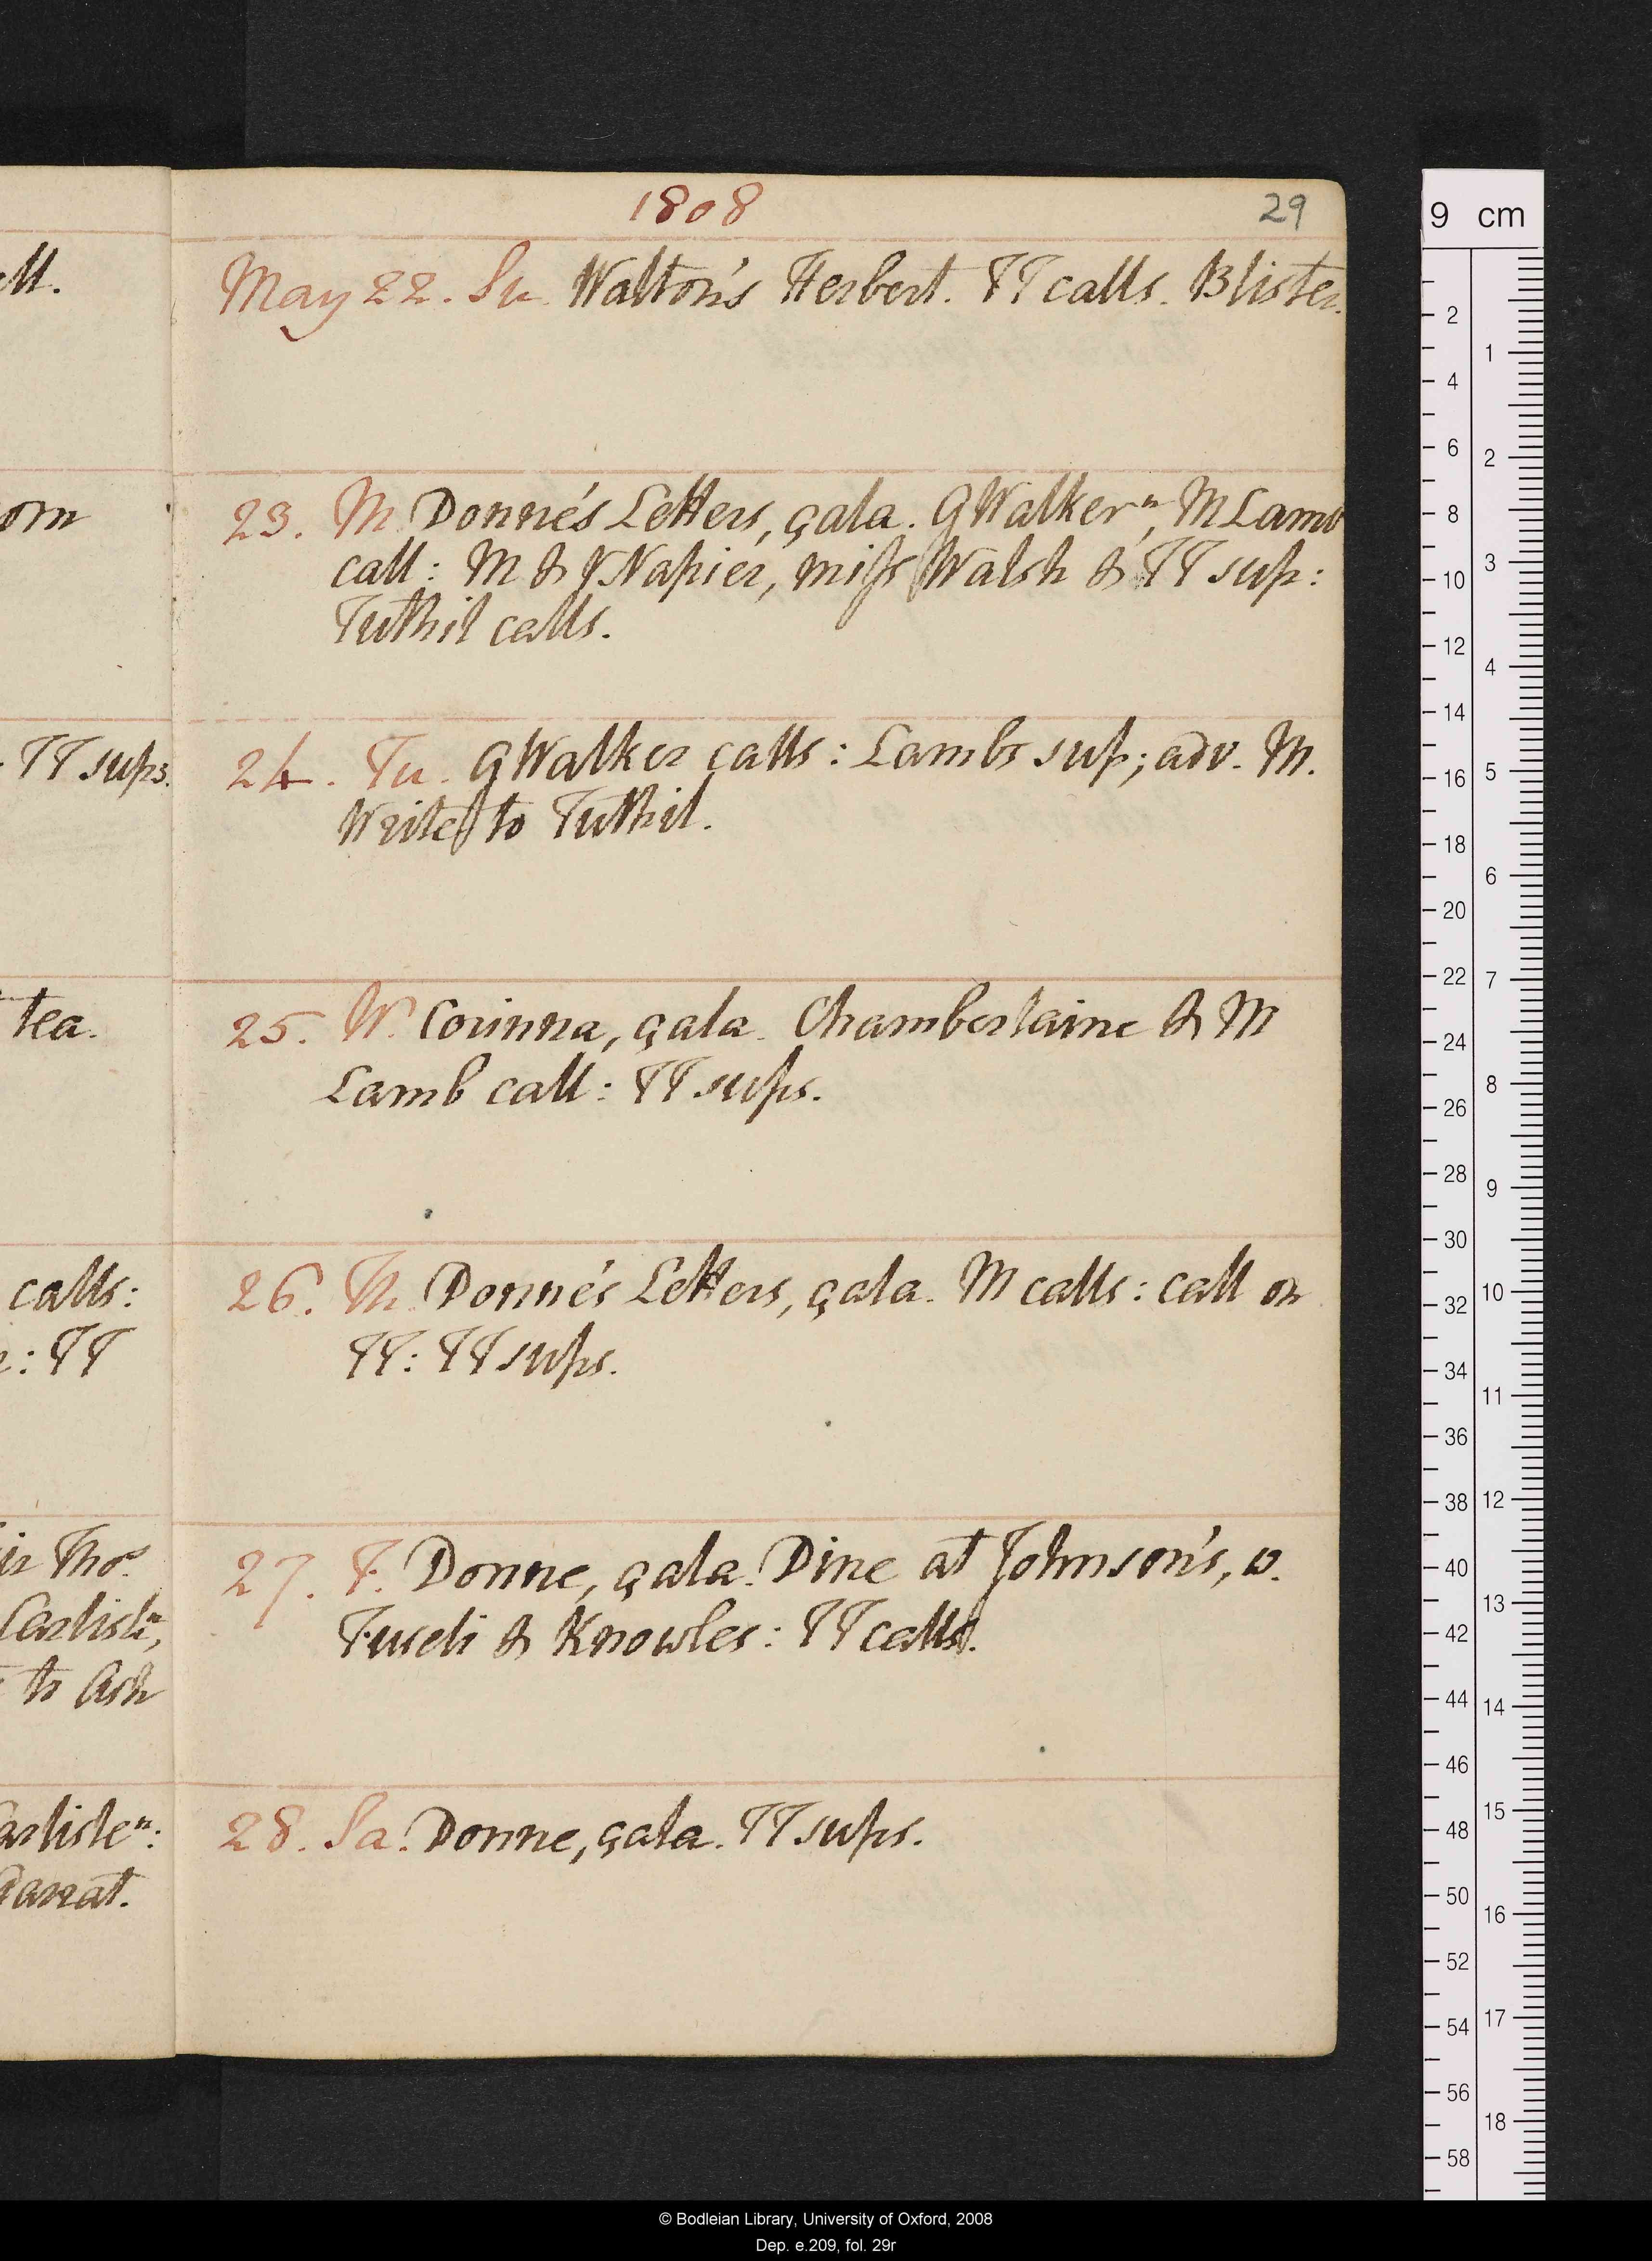 1808
29
May 22. Su. Walton's Herbert. TT calls. Blister.
23. M. Donne's Letters, çala. G Walker n, M Lamb
call: M & J Napier, miss Walsh & TT sup:
Tuthil calls.
24. Tu. G Walker calls: Lambs sup; adv. M.
Write to Tuthil.
25. W. Corinna, çala. Chamberlaine & M
Lamb call: TT sups.
26. Th. Donne's Letters, çala. M calls: call on
TT: TT sups.
27. F. Donne, çala. Dine at Johnson's, w.
Fuseli & Knowles: TT calls.
28. Sa. Donne, çala. TT sups.
TT sups.
tea.
calls:
: TT
Tho s.
Carlisle n,
to Ash
arlisle n:
Garrat.
9 cm
2
4
6
8
10
12
14
16
18
20
22
24
26
28
30
32
34
36
38
40
42
44
46
48
50
52
54
56
58
1
2
3
4
5
6
7
8
9
10
11
12
13
14
15
16
17
18
© Bodleian Library, University of Oxford, 2008
Dep. e.209, fol. 29r